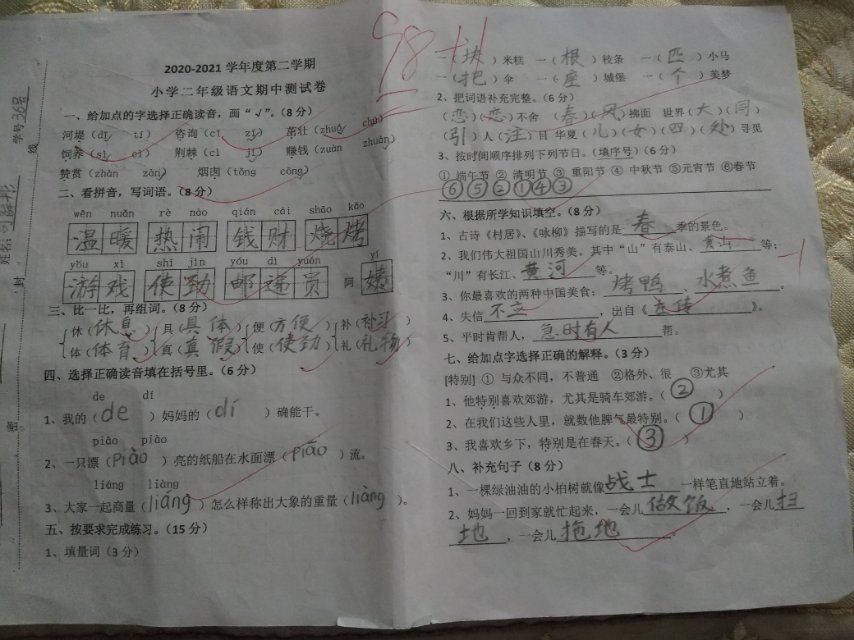 学号 38号
姓名
级
封
密
2020-2021 学年度第二学期
小学二年级语文期中测试卷
一、给加点的字选择正确读音，画“√”。(8 分)
河堤（dī tí） 咨询（cī zī） 茁壮（zhuó chū）
饲养（sì cì） 荆棘（cì jí） 赚钱（zuàn zhuàn）
赞赏（zhàn zàn） 烟囱（tōng cōng）
二、看拼音，写词语。(8 分)
wēn nuǎn rè nào qián cái shāo kǎo
温暖 热闹 钱财 烧烤
yóu xì shǐ jìn yóu dì yuán yí
游戏 使劲 邮递员 阿姨
三、比一比，再组词。(8 分)
休（休息） 具（具体） 便（方便） 补（补习）
体（体育） 真（真假） 使（使劲） 礼（礼物）
四、选择正确读音填在括号里。(6 分)
de dí
1、我的（de）妈妈的（dí）确能干。
piào piāo
2、一只漂（piào）亮的纸船在水面漂（piāo）流。
liáng liàng
3、大家一起商量（liáng）怎么样称出大象的重量（liàng）。
五、按要求完成练习。(15 分)
1、填量词（3 分）
98+1
一（块）米糕 一（根）枝条 一（匹）小马
一（把）伞 一（座）城堡 一（个）美梦
2、把词语补充完整。(6 分)
（恋）（恋）不舍 （春）（风）拂面 世界（大）（同）
（引）人（注）目 华夏（儿）（女）（四）（处）寻见
3、按时间顺序排列下列节日。(填序号)(6 分)
① 端午节 ② 清明节 ③ 重阳节 ④ 中秋节 ⑤元宵节 ⑥春节
⑥⑤②①④③
六、根据所学知识填空。(8 分)
1、古诗《村居》、《咏柳》描写的是 春 季的景色。
2、我们伟大祖国山川秀美，其中“山”有泰山、黄山 等；
“川”有长江、黄河 等。
-1
3、你最喜欢的两种中国美食： 烤鸭 、 水煮鱼 。
4、失信 不立 ，出自《 左传 》。
5、平时肯帮人， 急时有人 帮。
七、给加点字选择正确的解释。(3 分)
[特别] ① 与众不同，不普通 ②格外、很 ③尤其
1、他特别喜欢郊游，尤其是骑车郊游。（ ② ）
2、在我们这些人里，就数他脾气最特别。（ ① ）
3、我喜欢乡下，特别是在春天。（ ③ ）
八、补充句子（8 分）
1、一棵绿油油的小柏树就像 战士 一样笔直地站立着。
2、妈妈一回到家就忙起来，一会儿 做饭 ，一会儿 扫
地 ，一会儿 拖地 。